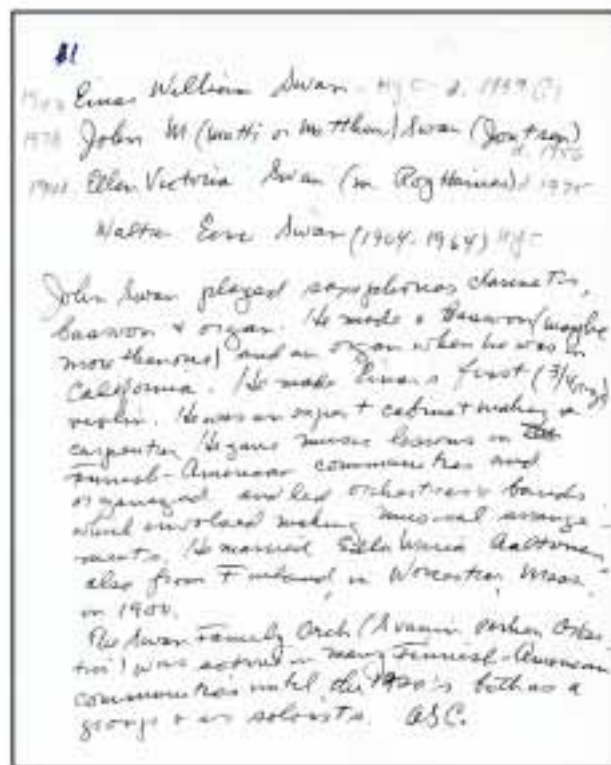 11
1903 Einar William Swan - d. 1939 (?)
John M (Matti or Matthew) Swan
Ellen Victoria Swan (m Roy Haines)
Walter Swan (1904-1904)
John Swan played saxophones clarinets,
bassoon & organ. He made a Bassoon (maybe
more than one) and an organ when he was in
California. He made Einar's first (3/4
violin. He was an expert cabinet making &
carpenter. He gave music lessons in
Finnish-American communities and
organized and led orchestras & bands
which involved making musical arrange-
ments. He married Maria Aaltonen,
also from Finland, in Worcester, Mass.
in 1900.
The Swan Family Orch (
) was active in many Finnish-American
communities until the 1920's both as a
group & as soloists. ASC.